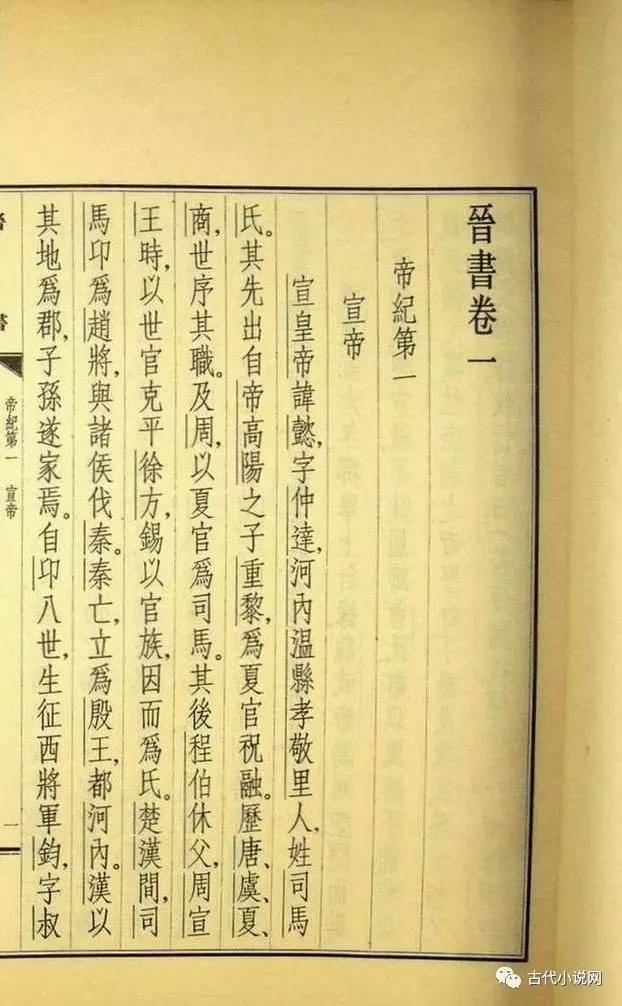 晉書卷一
帝紀第一
宣帝
宣皇帝諱懿，字仲達，河內溫縣孝敬里人，姓司馬
氏。其先出自帝高陽之子重黎，爲夏官祝融。歷唐、虞、夏、
商，世序其職。及周，以夏官爲司馬。其後程伯休父，周宣
王時，以世官克平徐方，錫以官族，因而爲氏。楚漢間，司
馬卬爲趙將，與諸侯伐秦。秦亡，立爲殷王，都河內。漢以
其地爲郡，子孫遂家焉。自卬八世，生征西將軍鈞，字叔
帝紀第一 宣帝
一
古代小说网